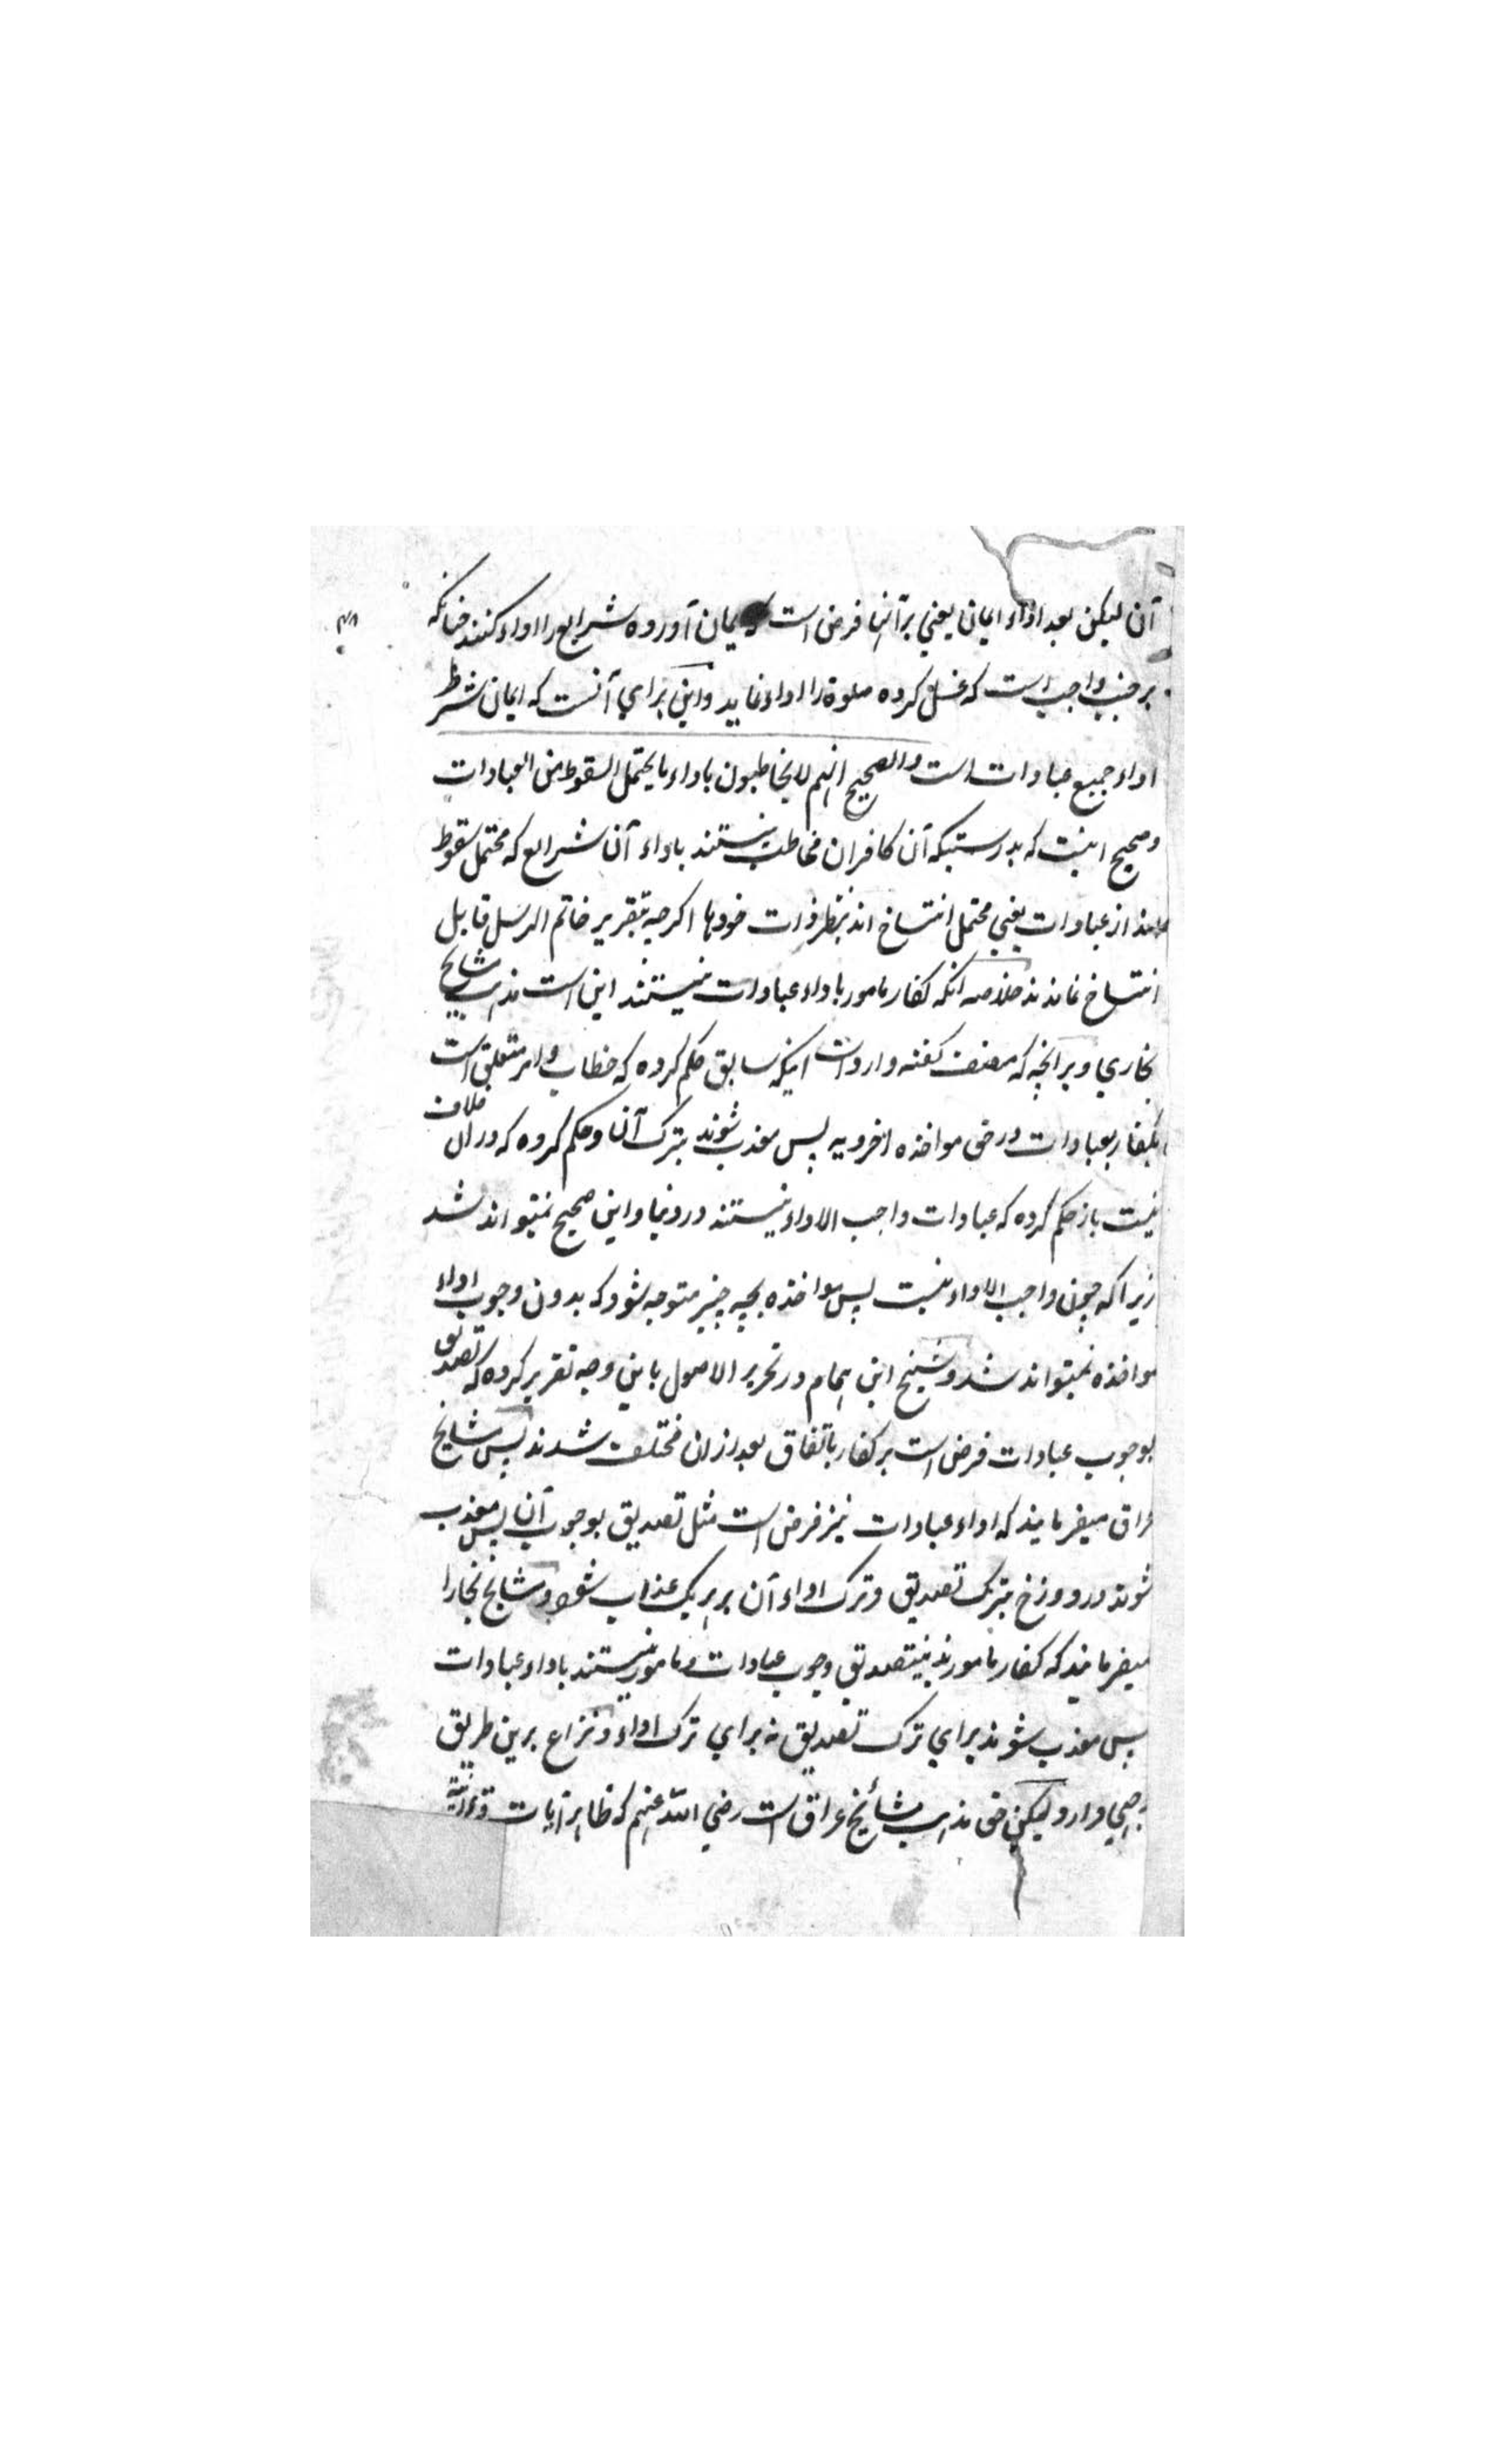 آن لیکن بعد اداء ایمان یعنی بر آنها فرض است ایمان آورده شرایع را اداء کنند چنانکه
بر جنب واجب است که غسل کرده صلوة را اداء نماید و این برای آنست که ایمان شرط
اداء جمیع عبادات است والصحیح انهم لایخاطبون باداء مایحتمل السقوط من العبادات
وصحیح اینست که بدرستیکه آن کافران مخاطب نیستند باداء آن شرایع که محتمل سقوط
اند از عبادات یعنی محتمل انتساخ اند بنظر ذات خودها اگرچه بتقریر خاتم الرسل قابل
انتساخ نماندند خلاصه آنکه کفار مامور باداء عبادات نیستند این است مذهب مشایخ
بخاری و بر آنچه که مصنف گفته وارد است اینکه سابق حکم کرده که خطاب وامر متعلق است
بکفار بعبادات در حق مواخذه اخرویه پس معذب شوند بترک آن و حکم کرده که در آن خلاف
نیست باز حکم کرده که عبادات واجب الاداء نیستند در دنیا و این صحیح نمیتواند شد
زیرا که چون واجب الاداء نیست پس مواخذه بچه چیز متوجه شود که بدون وجوب اداء
مواخذه نمیتواند شد و شیخ ابن همام در تحریر الاصول باین وجه تقریر کرده که تصدیق
بوجوب عبادات فرض است بر کفار باتفاق بعد ازان مختلف شدند پس مشایخ
عراق میفرمایند که اداء عبادات نیز فرض است مثل تصدیق بوجوب آن پس معذب
شوند در دوزخ بترک تصدیق و ترک اداء آن بر هر یک عذاب شود و مشایخ بخارا
میفرمایند که کفار مامورند بتصدیق وجوب عبادات و مامور نیستند باداء عبادات
پس معذب شوند برای ترک تصدیق نه برای ترک اداء و نزاع برین طریق
وارد لیکن حق مذهب مشائخ عراق است رضی الله عنهم که ظاهر آیات قرآنیة